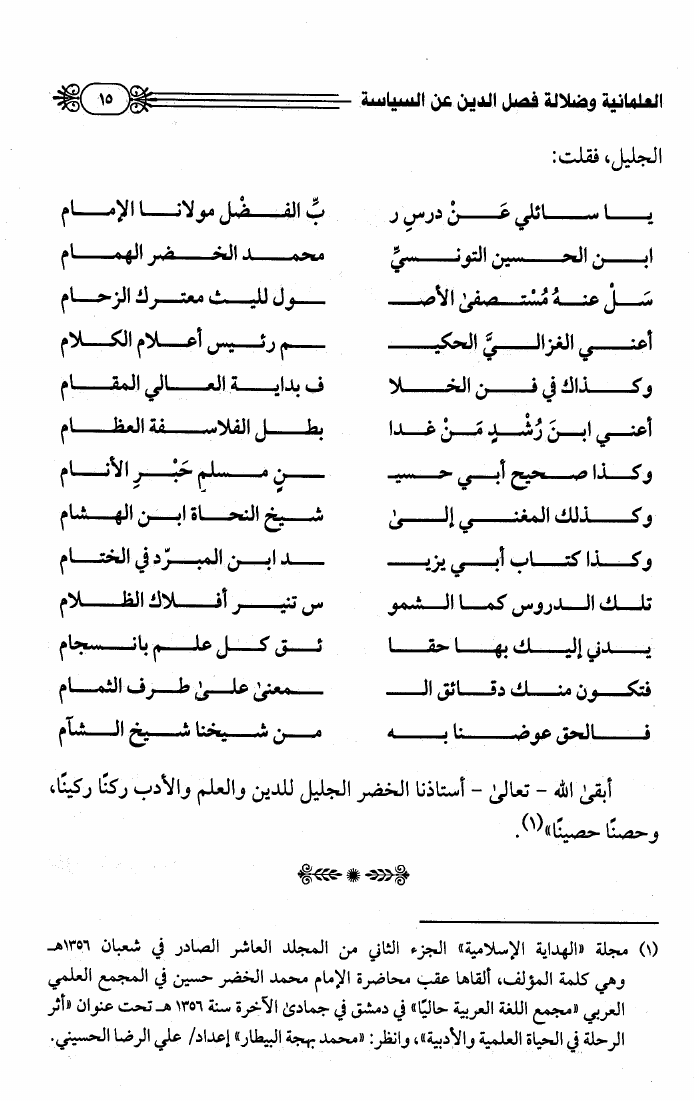 العلمانية وضلالة فصل الدين عن السياسة ١٥
الجليل، فقلت:
يا سائلي عَنْ درسِ ر بِّ الفضْل مولانا الإمام
ابن الحسين التونسيِّ محمد الخضر الهمام
سَلْ عنهُ مُسْتصفىٰ الأصـ ـول لليث معترك الزحام
أعني الغزاليَّ الحكيـ ـم رئيس أعلام الكلام
وكذاك في فن الخلا ف بداية العالي المقام
أعني ابنَ رُشْدٍ مَنْ غدا بطل الفلاسفة العظام
وكذا صحيح أبي حسيـ ـنٍ مسلمٍ حَبْرِ الأنام
وكذلك المغني إلىٰ شيخ النحاة ابن الهشام
وكذا كتاب أبي يزيـ ـد ابن المبرّد في الختام
تلك الدروس كما الشمو س تنير أفلاك الظلام
يدني إليك بها حقا ئق كل علم بانسجام
فتكون منك دقائق الـ ـمعنىٰ علىٰ طرف الثمام
فالحق عوضنا به من شيخنا شيخ الشآم
أبقىٰ الله - تعالىٰ - أستاذنا الخضر الجليل للدين والعلم والأدب ركنًا ركينًا،
وحصنًا حصينًا»(١).
(١) مجلة «الهداية الإسلامية» الجزء الثاني من المجلد العاشر الصادر في شعبان ١٣٥٦هـ
وهي كلمة المؤلف، ألقاها عقب محاضرة الإمام محمد الخضر حسين في المجمع العلمي
العربي «مجمع اللغة العربية حاليًا» في دمشق في جمادىٰ الآخرة سنة ١٣٥٦ هـ تحت عنوان «أثر
الرحلة في الحياة العلمية والأدبية»، وانظر: «محمد بهجة البيطار» إعداد/ علي الرضا الحسيني.